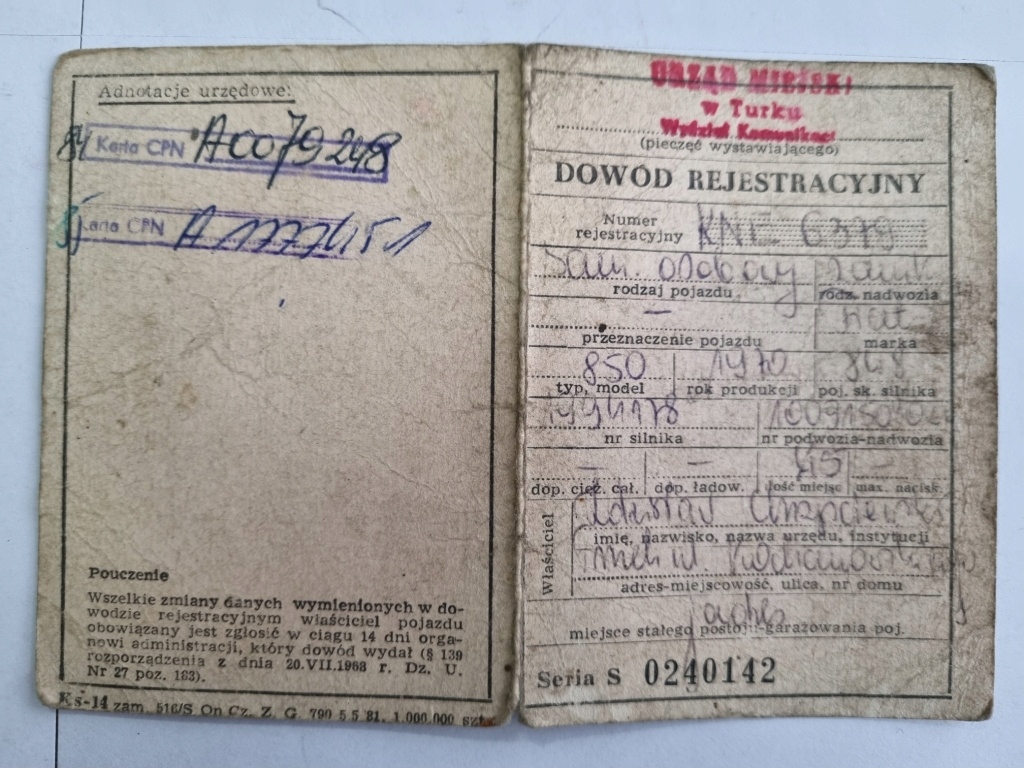 Adnotacje urzędowe:
84 Karta CPN A0079248
Karta CPN A
Pouczenie
Wszelkie zmiany danych wymienionych w do-
wodzie rejestracyjnym właściciel pojazdu
obowiązany jest zgłosić w ciągu 14 dni orga-
nowi administracji, który dowód wydał (§ 139
rozporządzenia z dnia 20.VII.1968 r. Dz. U.
Nr 27 poz. 183).
Ks-14 zam. 516/S On Cz. Z. G. 790 5 5 81. 1.000.000 szt.
URZĄD MIEJSKI
w Turku
Wydział Komunikacji
(pieczęć wystawiającego)
DOWÓD REJESTRACYJNY
Numer
rejestracyjny KNE 6379
Sam. osobowy
rodzaj pojazdu rodz. nadwozia
—
przeznaczenie pojazdu marka
850 1970 848
typ, model rok produkcji poj. sk. silnika
nr silnika nr podwozia-nadwozia
— — —
dop. cięż. cał. dop. ładow. ilość miejsc max. nacisk.
Właściciel
Zdzisław
imię, nazwisko, nazwa urzędu, instytucji
adres-miejscowość, ulica, nr domu
miejsce stałego postoju-garażowania poj.
Seria S 0240142